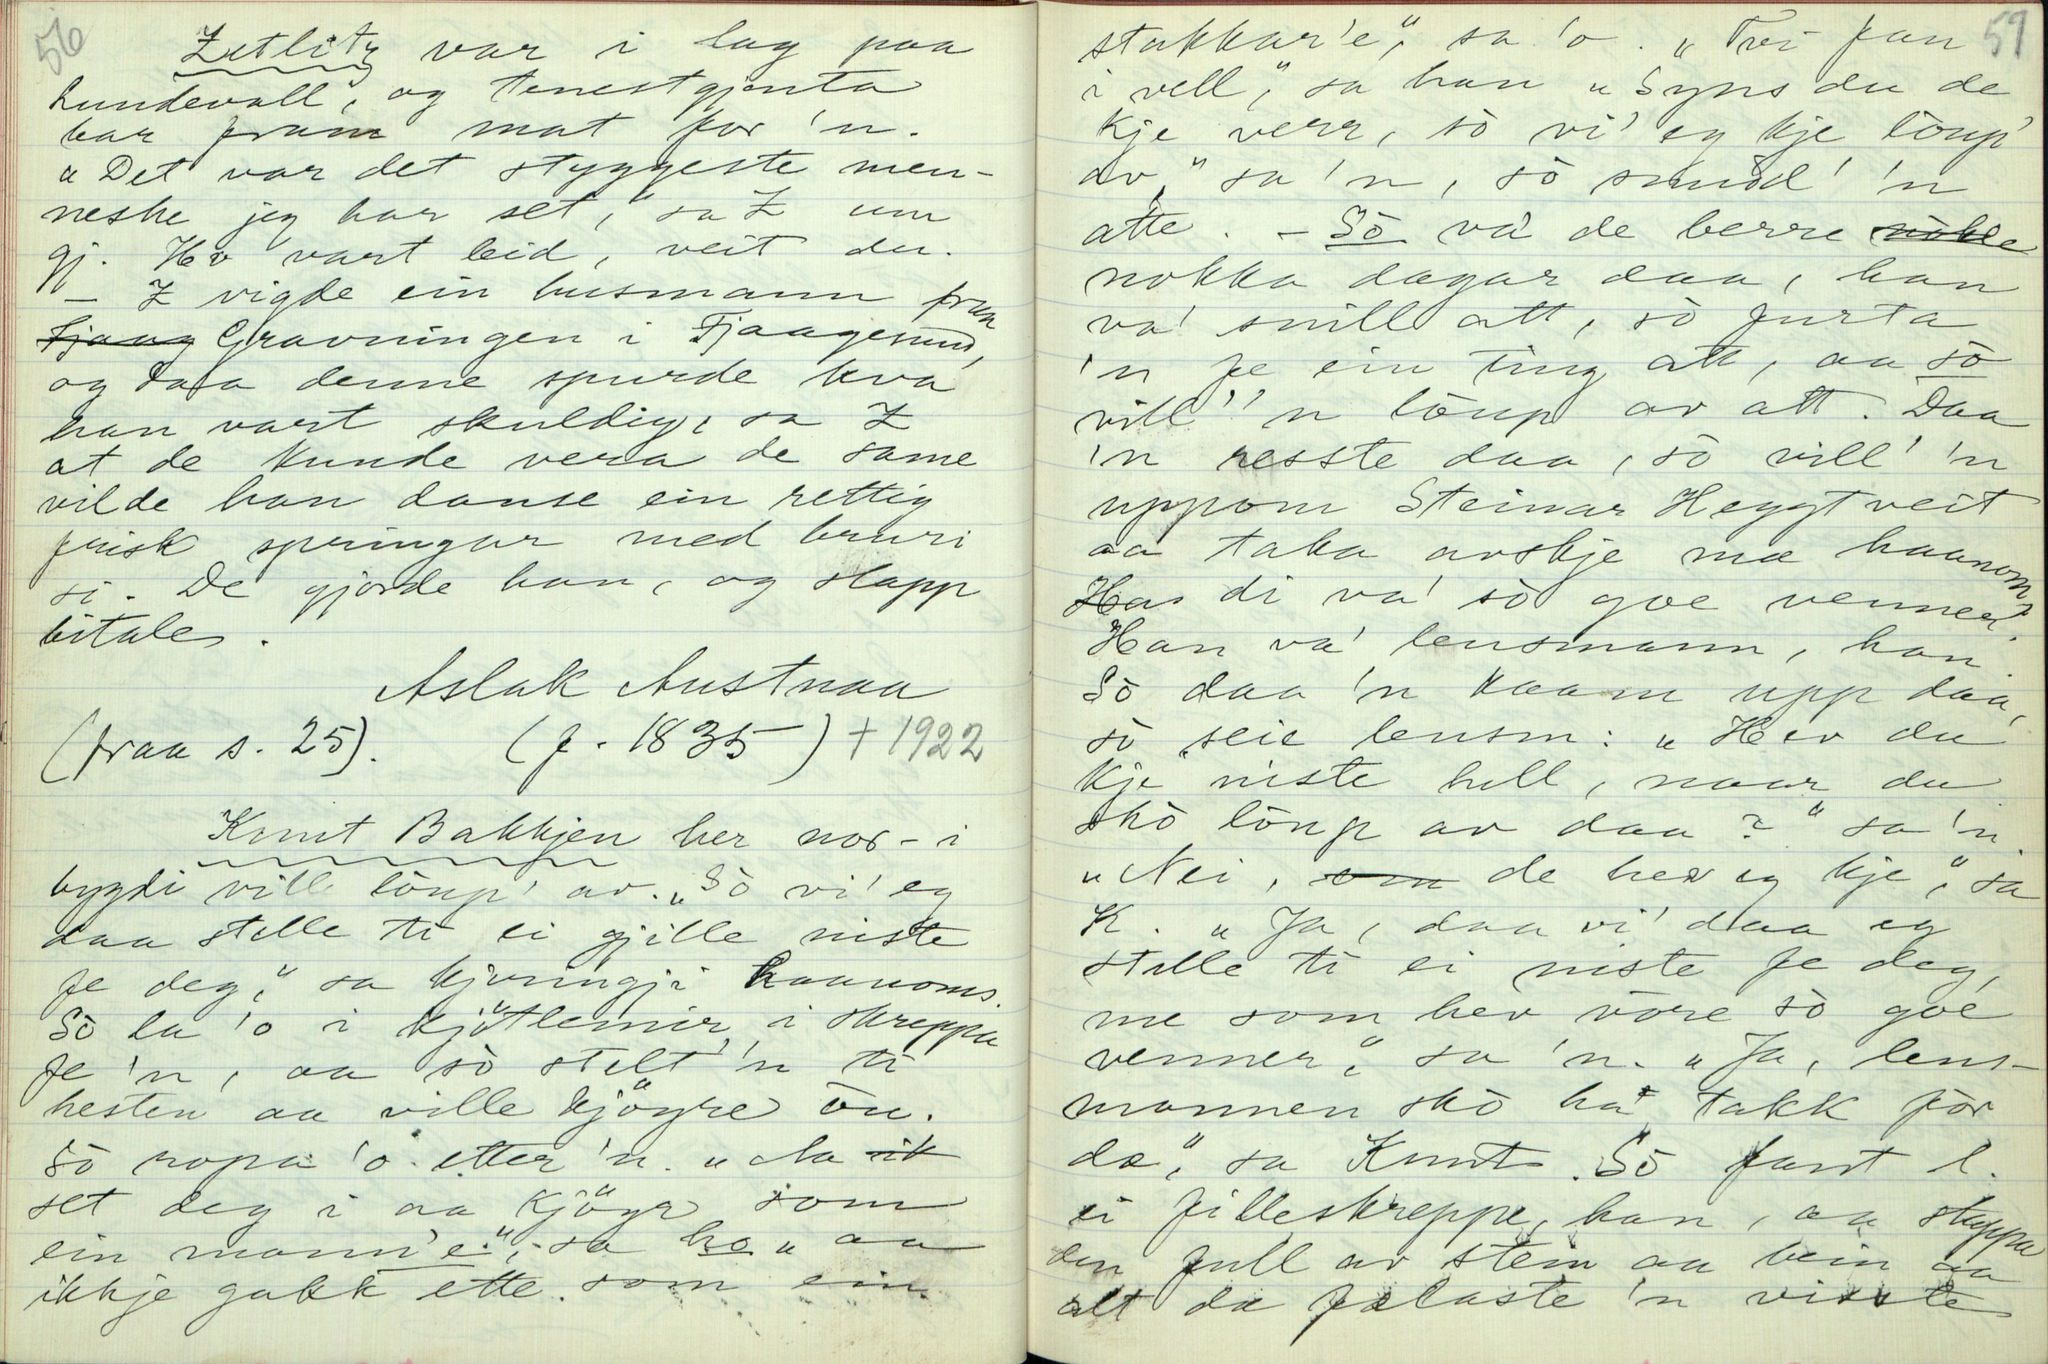 56
Zetlitz var i lag paa
Lundevall, og tenestgjenta
bar fram mat for 'n.
„Det var det styggeste men-
neske jeg har set," sa Z um
gj. Ho vart leid, veit du.
– Z vigde ein husmann fraa
Fjaag Gravningen i Fjaagesund,
og daa denne spurde kva
han vart skuldig, sa Z
at de kunde vera de same
vilde han danse ein rettig
frisk springar med bruri
si. De gjorde han, og slapp
bitale.
Aslak Austnaa
(fraa s. 25). (f. 1835) + 1922
Knut Bakkjen her nor-i
bygdi ville löup' av. „Sò vi' eg
daa stelle te ei gjille niste
fe deg," sa kjeringji haanoms.
Sò la 'o i kjötlemir i skreppa
fe 'n, aa sò stelt' 'n te
hesten aa ville kjöyre òu.
Sò ropa 'o etter 'n. „No ik
set deg i aa kjöyr som
ein mann'e", sa ho „aa
ikkje gakk ette som ein
57
stakkar'e", sa 'o. „Tvi fan
i vell," sa han „Syns du de
kje verr, sò vi' eg kje löup'
av," sa 'n, sò snudd' 'n
atte. – Sò va' de berre nokle
nokka dagar daa, han
va' snill att, sò furta
'n fe ein ting att, aa sò
vill' 'n löup av att. Daa
'n resste daa, sò vill' 'n
uppom Steinar Heggtveit
aa taka avskje mæ haanom,
Han di va' sò goe venner.
Han va' lensmann, han.
Sò daa 'n kaam upp daa,
sò seie lensm: „Hev du
kje niste hell, naar du
skò löup av daa?" sa 'n.
„Nei, som de hev eg kje", sa
K. „Ja, daa vi' daa eg
stelle te ei niste fe deg,
me som hev vore sò goe
venner", sa 'n. „Ja, lens-
mannen skò ha takk før
dæ", sa Knut. Sò fant l.
ei filleskreppe, han, aa stappa
den full av stein aa bein aa
alt de falaste 'n visste